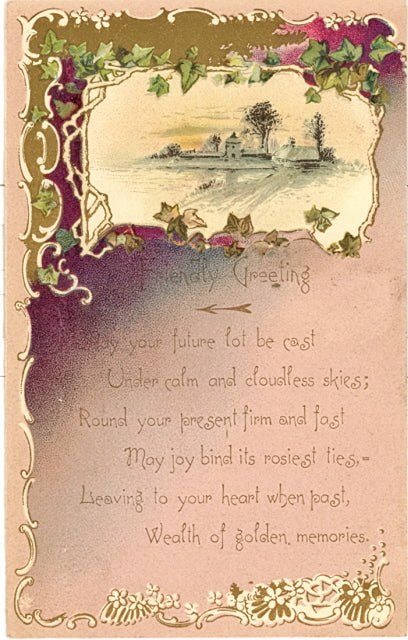 Friendly Greeting
May your future lot be cast
Under calm and cloudless skies;
Round your present firm and fast
May joy bind its rosiest ties,=
Leaving to your heart when past,
Wealth of golden memories.